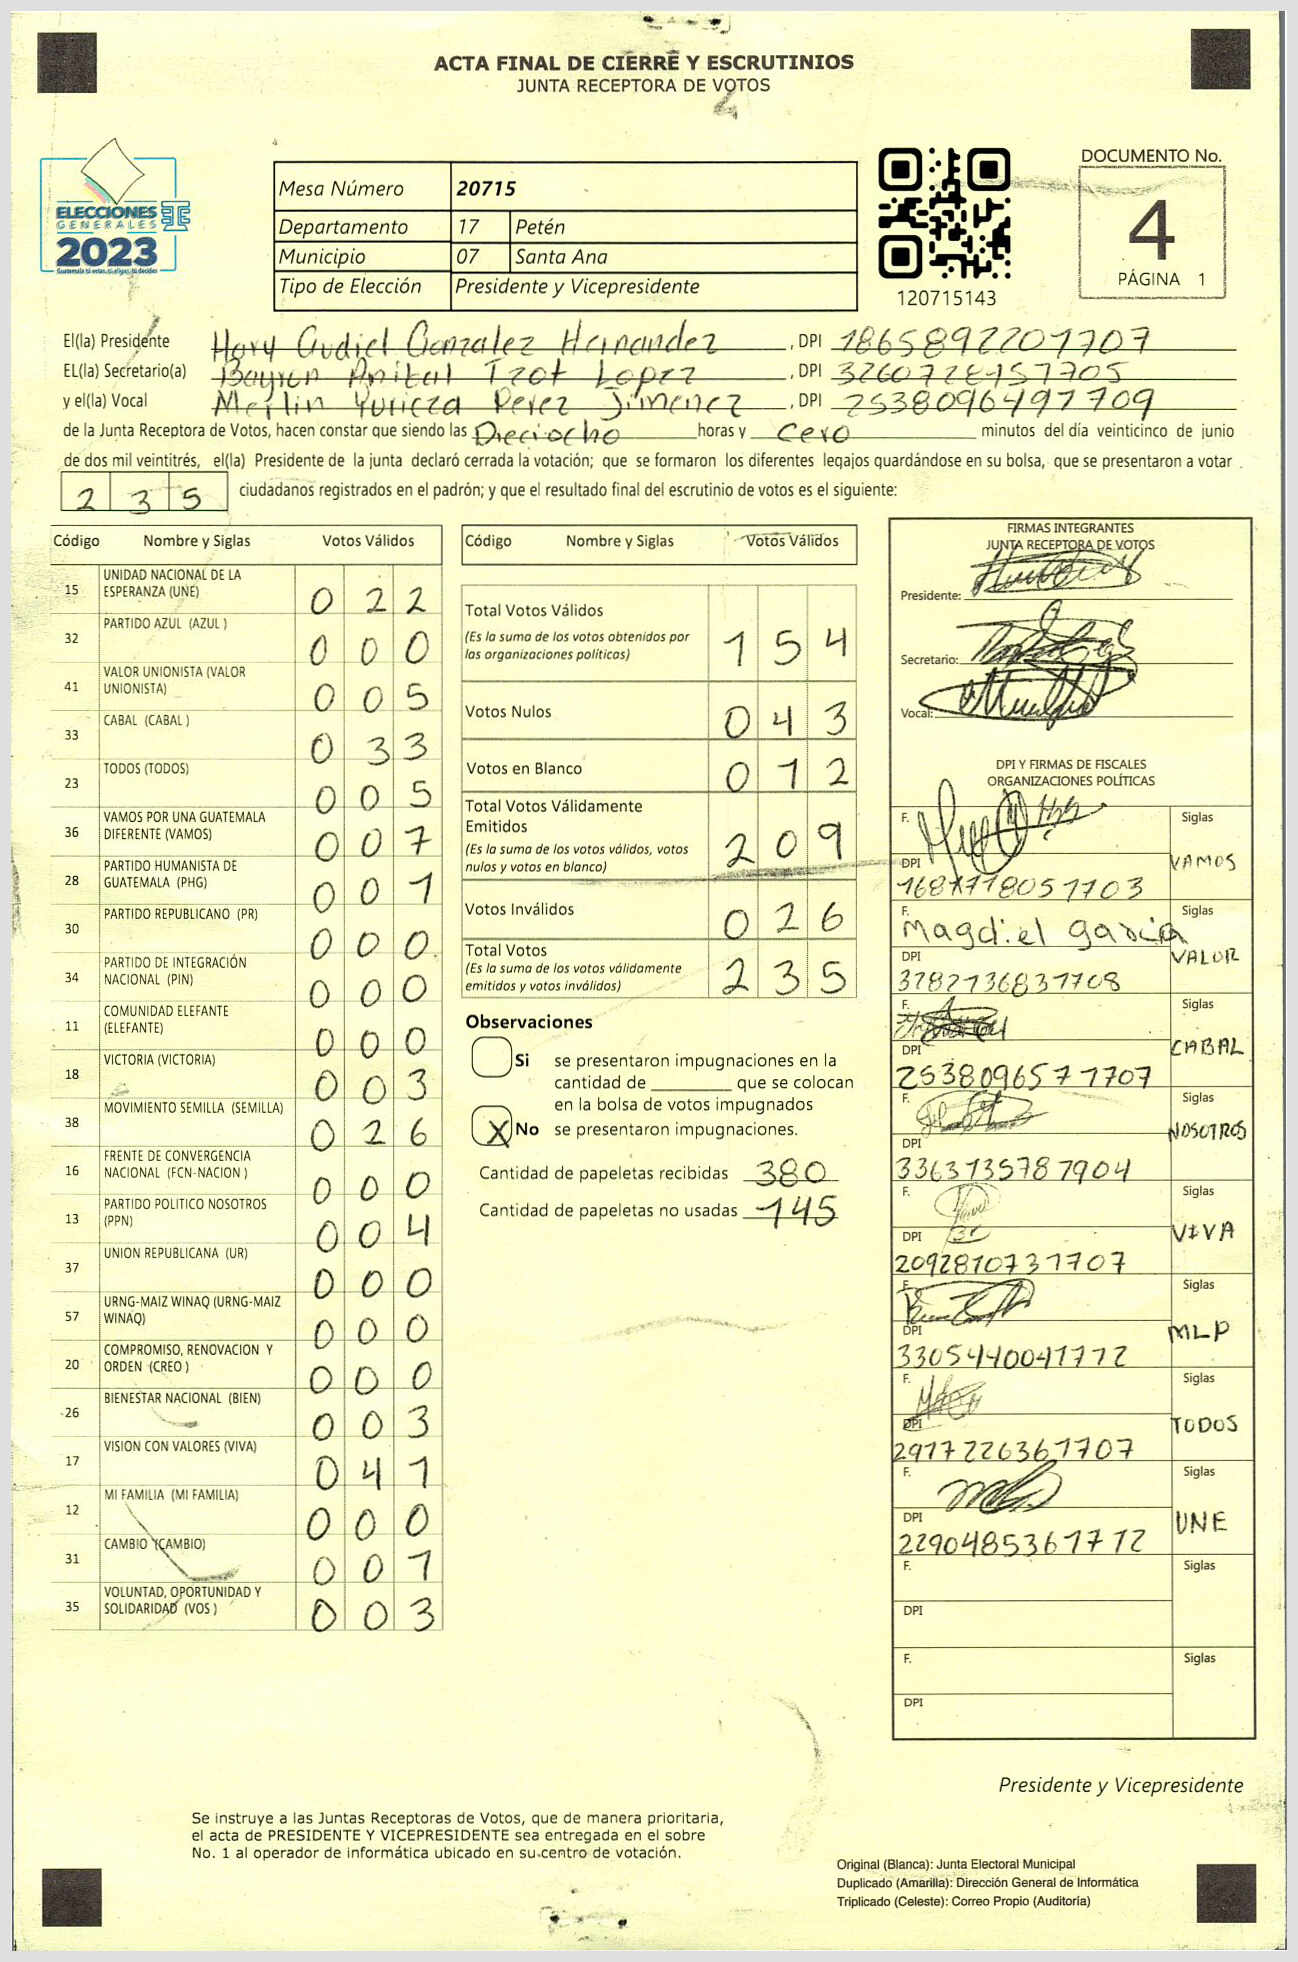 ACTA FINAL DE CIERRE Y ESCRUTINIOS
JUNTA RECEPTORA DE VOTOS
ELECCIONES
GENERALES
2023
Mesa Número 20715
Departamento 17 Petén
Municipio 07 Santa Ana
Tipo de Elección Presidente y Vicepresidente
120715143
DOCUMENTO No.
4
PÁGINA 1
El(la) Presidente Hary Gudiel Gonzalez Hernandez, DPI 1865892201707
EL(la) Secretario(a) Bayron Anibal Tzot Lopez, DPI 3260728157705
y el(la) Vocal Merlin Yuricza Perez Jimenez, DPI 2538096491709
de la Junta Receptora de Votos, hacen constar que siendo las Dieciocho horas y cero minutos del día veinticinco de junio
de dos mil veintitrés, el(la) Presidente de la junta declaró cerrada la votación; que se formaron los diferentes legajos guardándose en su bolsa, que se presentaron a votar
2 3 5 ciudadanos registrados en el padrón; y que el resultado final del escrutinio de votos es el siguiente:
Código Nombre y Siglas Votos Válidos
15 UNIDAD NACIONAL DE LA
ESPERANZA (UNE) 0 2 2
32 PARTIDO AZUL (AZUL ) 0 0 0
41 VALOR UNIONISTA (VALOR
UNIONISTA) 0 0 5
33 CABAL (CABAL ) 0 3 3
23 TODOS (TODOS) 0 0 5
36 VAMOS POR UNA GUATEMALA
DIFERENTE (VAMOS) 0 0 7
28 PARTIDO HUMANISTA DE
GUATEMALA (PHG) 0 0 1
30 PARTIDO REPUBLICANO (PR) 0 0 0
34 PARTIDO DE INTEGRACIÓN
NACIONAL (PIN) 0 0 0
11 COMUNIDAD ELEFANTE
(ELEFANTE) 0 0 0
18 VICTORIA (VICTORIA) 0 0 3
38 MOVIMIENTO SEMILLA (SEMILLA) 0 2 6
16 FRENTE DE CONVERGENCIA
NACIONAL (FCN-NACION ) 0 0 0
13 PARTIDO POLITICO NOSOTROS
(PPN) 0 0 4
37 UNION REPUBLICANA (UR) 0 0 0
57 URNG-MAIZ WINAQ (URNG-MAIZ
WINAQ) 0 0 0
20 COMPROMISO, RENOVACION Y
ORDEN (CREO ) 0 0 0
26 BIENESTAR NACIONAL (BIEN) 0 0 3
17 VISION CON VALORES (VIVA) 0 4 1
12 MI FAMILIA (MI FAMILIA) 0 0 0
31 CAMBIO (CAMBIO) 0 0 1
35 VOLUNTAD, OPORTUNIDAD Y
SOLIDARIDAD (VOS ) 0 0 3
Código Nombre y Siglas Votos Válidos
Total Votos Válidos
(Es la suma de los votos obtenidos por
las organizaciones políticas) 1 5 4
Votos Nulos 0 4 3
Votos en Blanco 0 1 2
Total Votos Válidamente
Emitidos
(Es la suma de los votos válidos, votos
nulos y votos en blanco) 2 0 9
Votos Inválidos 0 2 6
Total Votos
(Es la suma de los votos válidamente
emitidos y votos inválidos) 2 3 5
Observaciones
Si se presentaron impugnaciones en la
cantidad de ________ que se colocan
en la bolsa de votos impugnados
X No se presentaron impugnaciones.
Cantidad de papeletas recibidas 380
Cantidad de papeletas no usadas 145
FIRMAS INTEGRANTES
JUNTA RECEPTORA DE VOTOS
Presidente:
Secretario:
Vocal:
DPI Y FIRMAS DE FISCALES
ORGANIZACIONES POLÍTICAS
F. Siglas
VAMOS
DPI
F. Siglas
Magdiel garcia
VALOR
DPI
3782736831708
F. Siglas
CABAL
DPI
2538096571707
F. Siglas
NOSOTROS
DPI
3363735781904
F. Siglas
VIVA
DPI
2092810731707
F. Siglas
MLP
DPI
3305440041712
F. Siglas
TODOS
DPI
2917226361707
F. Siglas
UNE
DPI
2290485361712
F. Siglas
DPI
F. Siglas
DPI
Presidente y Vicepresidente
Se instruye a las Juntas Receptoras de Votos, que de manera prioritaria,
el acta de PRESIDENTE Y VICEPRESIDENTE sea entregada en el sobre
No. 1 al operador de informática ubicado en su centro de votación.
Original (Blanca): Junta Electoral Municipal
Duplicado (Amarilla): Dirección General de Informática
Triplicado (Celeste): Correo Propio (Auditoría)